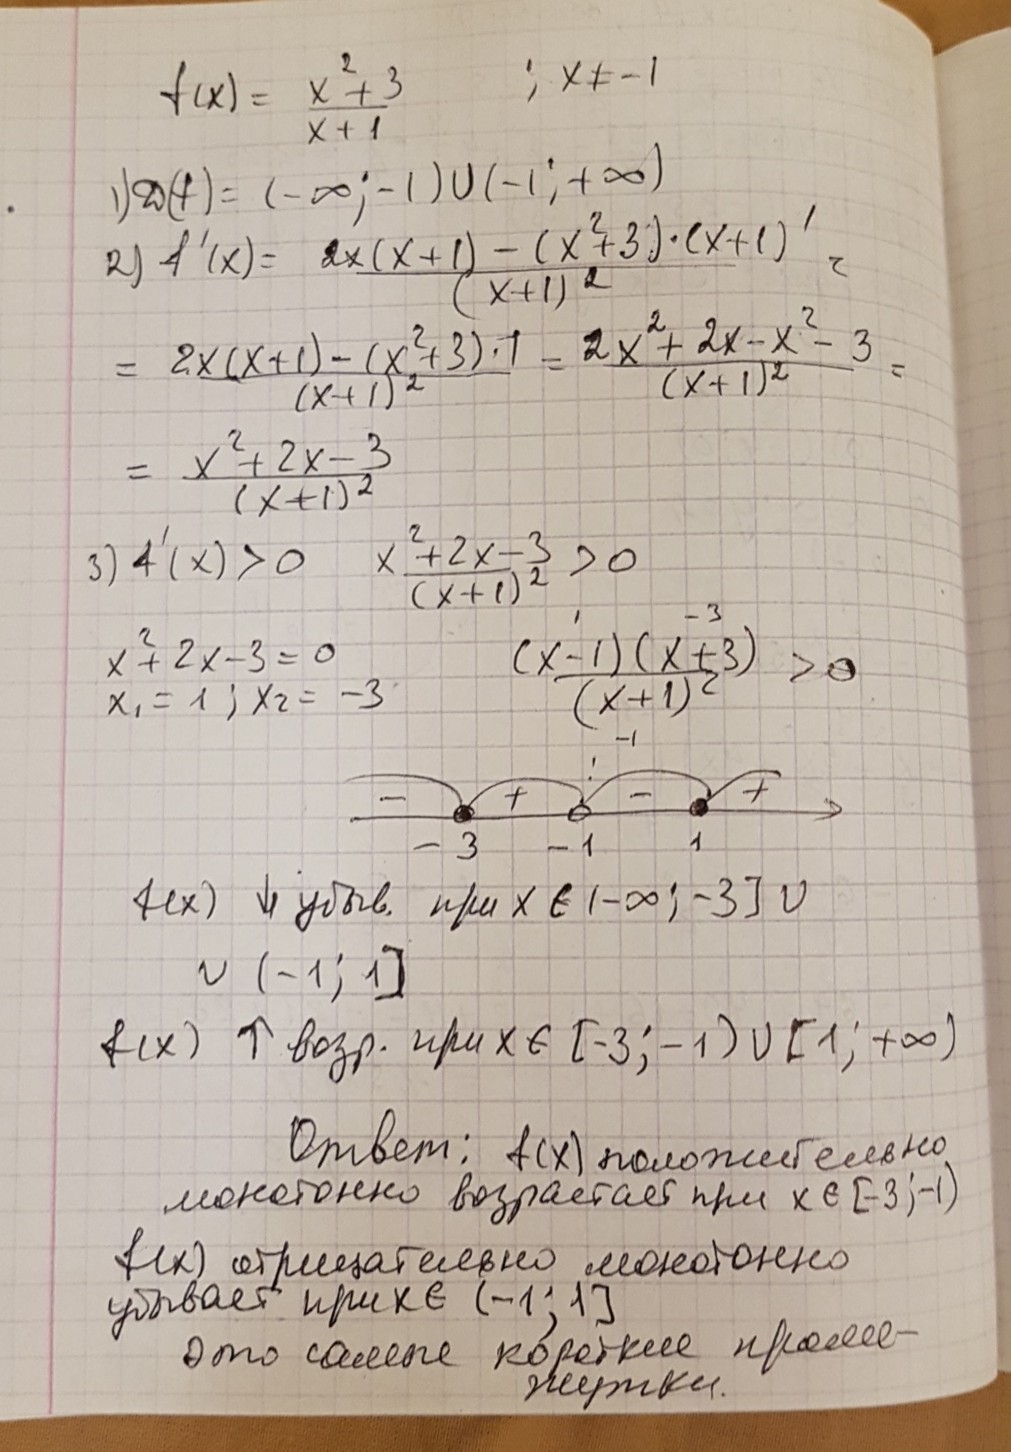 f(x) = (x²+3)/(x+1) ; x ≠ -1
1) D(f) = (-∞; -1) ∪ (-1; +∞)
2) f'(x) = (2x(x+1) - (x²+3)·(x+1)')/(x+1)² =
= (2x(x+1) - (x²+3)·1)/(x+1)² = (2x²+2x-x²-3)/(x+1)² =
= (x²+2x-3)/(x+1)²
3) f'(x) > 0 (x²+2x-3)/(x+1)² > 0
1 -3
x²+2x-3 = 0 ((x-1)(x+3))/(x+1)² > 0
x₁ = 1 ; x₂ = -3
-1
- + - +
-3 -1 1
f(x) ↓ убыв. при x ∈ (-∞; -3] ∪
∪ (-1; 1]
f(x) ↑ возр. при x ∈ [-3; -1) ∪ [1; +∞)
Ответ: f(x) положительно
монотонно возрастает при x ∈ [-3; -1)
f(x) отрицательно монотонно
убывает при x ∈ (-1; 1]
Это самые короткие проме-
жутки.